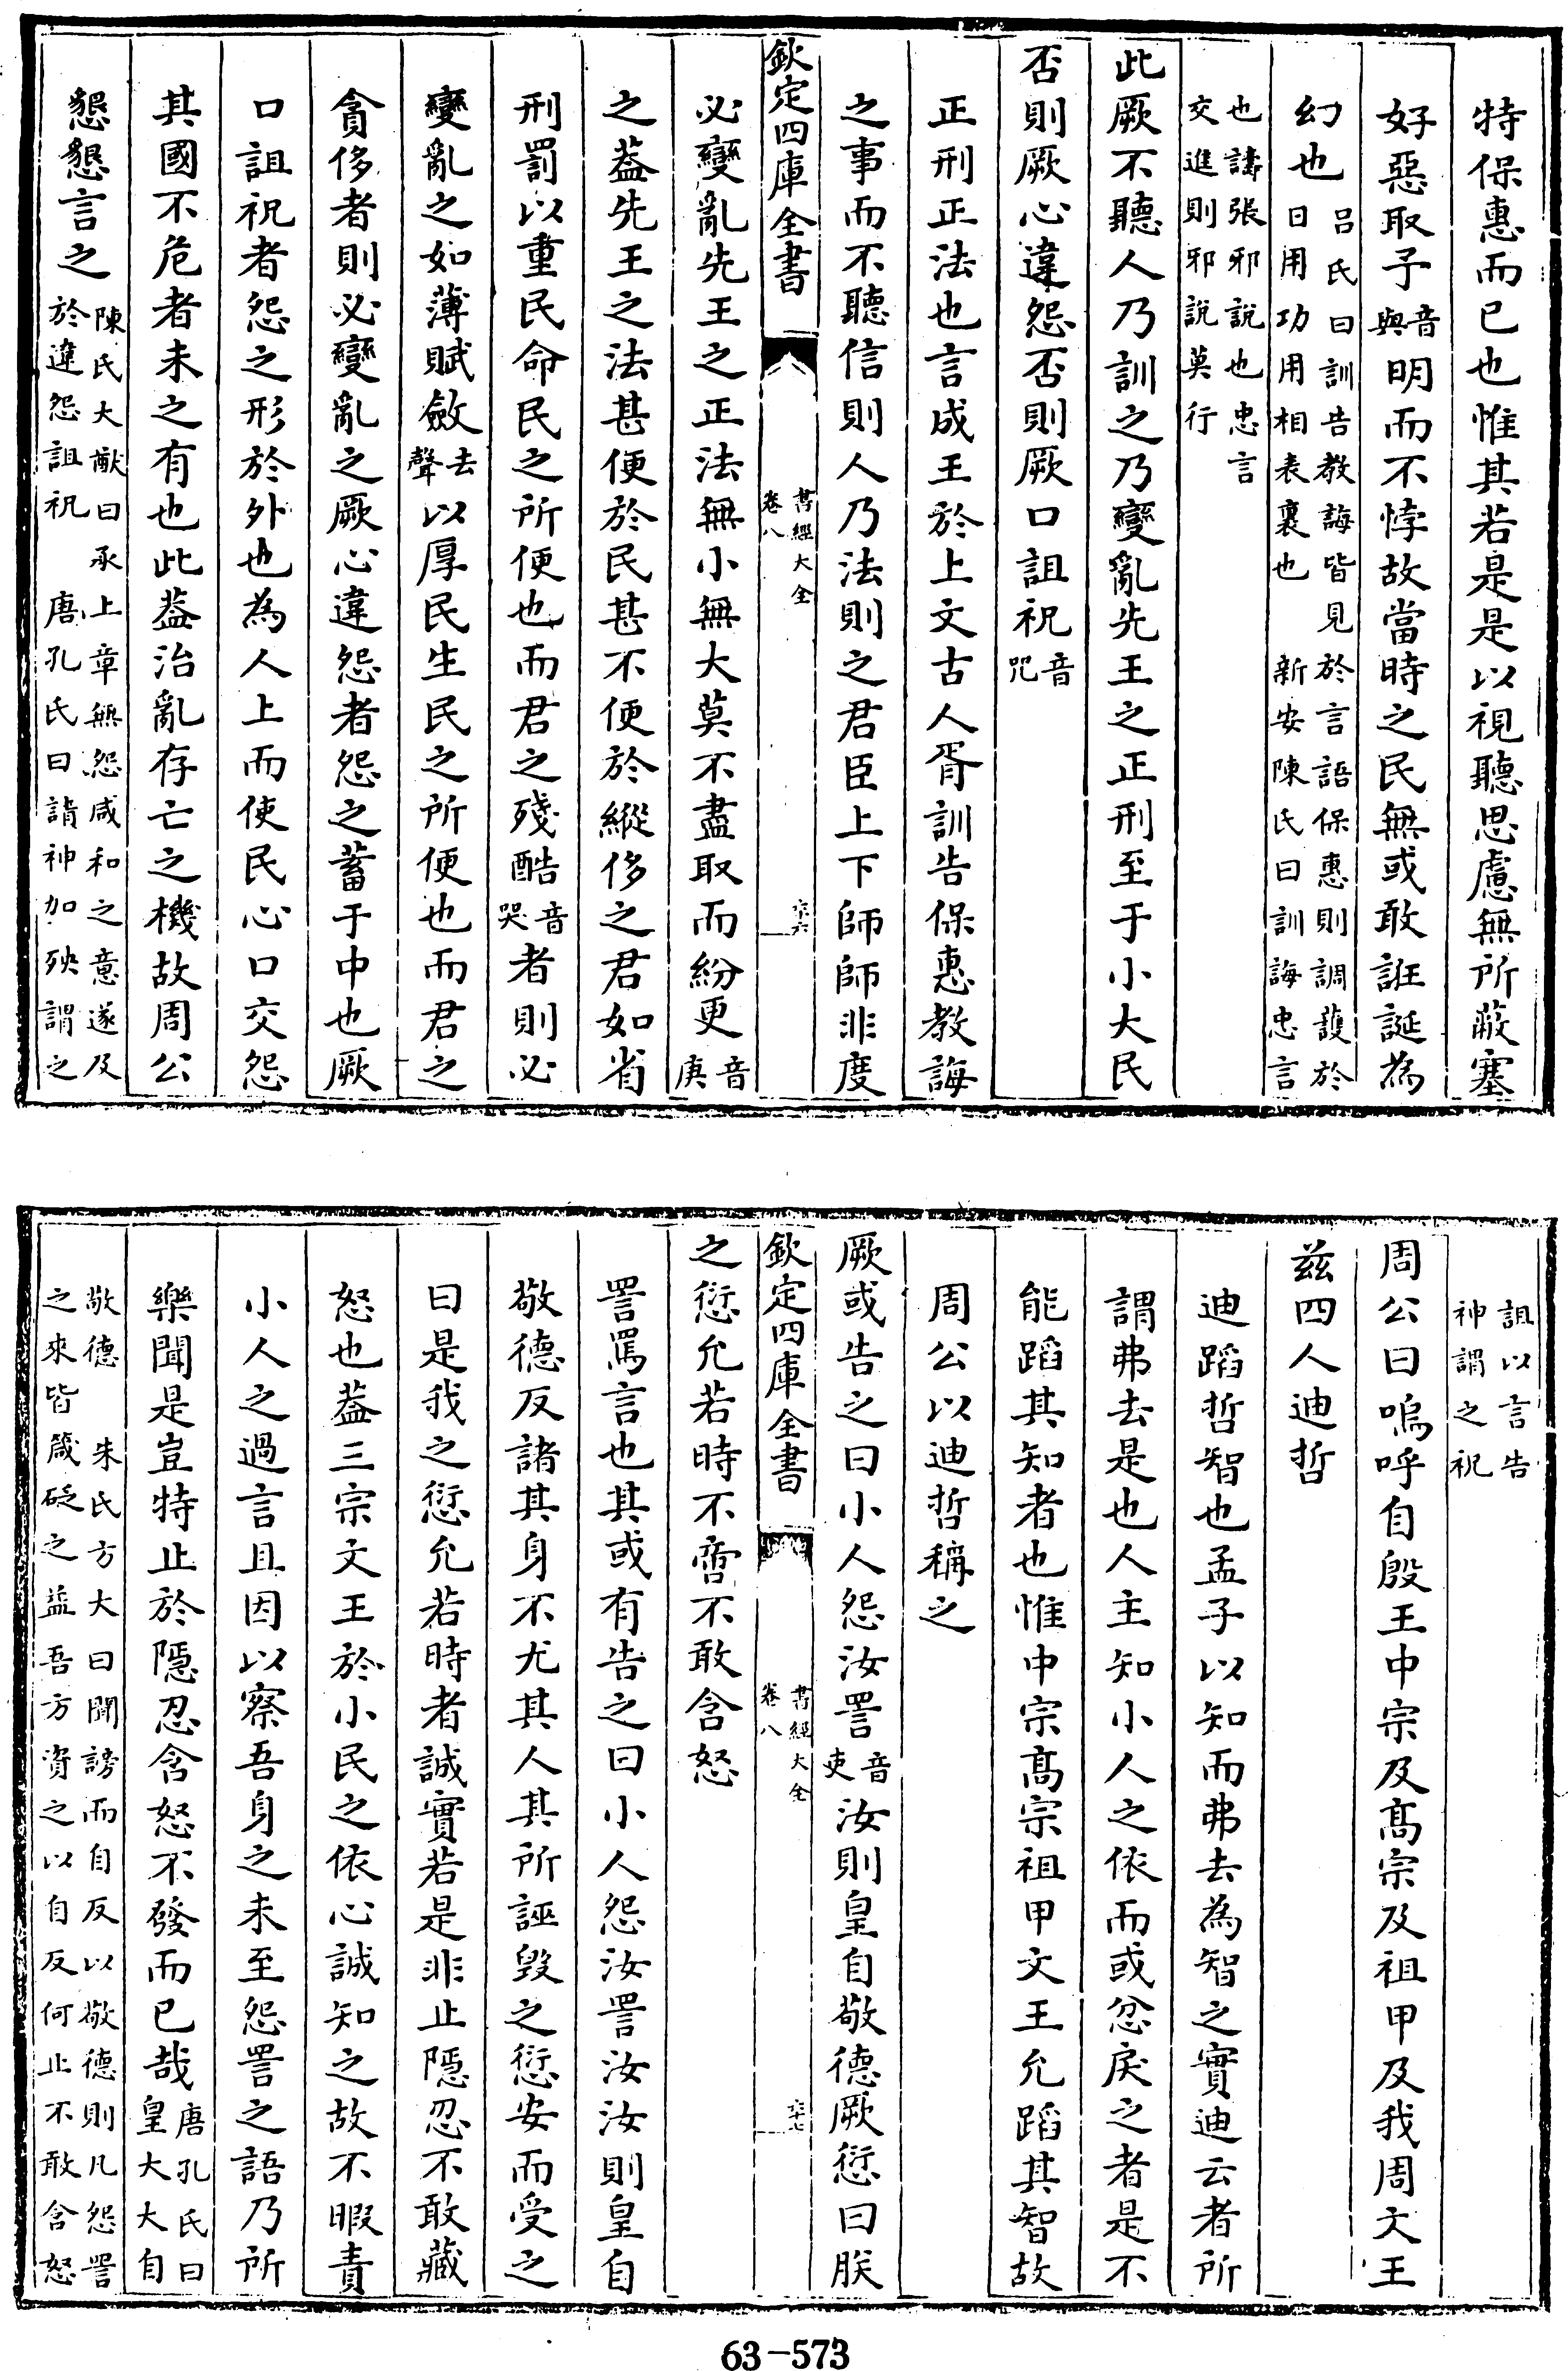 特保惠而已也惟其若是是以視聽思慮無所蔽塞
好惡取予音與明而不悖故當時之民無或敢誑誕為
幻也呂氏曰訓告教誨皆見於言語保惠則調護於
日用功用相表裏也　新安陳氏曰訓誨忠言
也譸張邪說也忠言
交進則邪說莫行
此厥不聽人乃訓之乃變亂先王之正刑至于小大民
否則厥心違怨否則厥口詛祝音咒
正刑正法也言成王於上文古人胥訓告保惠教誨
之事而不聽信則人乃法則之君臣上下師師非度
欽定四庫全書
書經大全
卷八
六十六
必變亂先王之正法無小無大莫不盡取而紛更音庚
之葢先王之法甚便於民甚不便於縱侈之君如省
刑罰以重民命民之所便也而君之殘酷音哭者則必
變亂之如薄賦斂去聲以厚民生民之所便也而君之
貪侈者則必變亂之厥心違怨者怨之蓄于中也厥
口詛祝者怨之形於外也為人上而使民心口交怨
其國不危者未之有也此葢治亂存亡之機故周公
懇懇言之陳氏大猷曰承上章無怨咸和之意遂及
於違怨詛祝　唐孔氏曰請神加殃謂之
詛以言告
神謂之祝
周公曰嗚呼自殷王中宗及髙宗及祖甲及我周文王
兹四人迪哲
迪蹈哲智也孟子以知而弗去為智之實迪云者所
謂弗去是也人主知小人之依而或忿戾之者是不
能蹈其知者也惟中宗髙宗祖甲文王允蹈其智故
周公以迪哲稱之
厥或告之曰小人怨汝詈音吏汝則皇自敬德厥愆曰朕
欽定四庫全書
書經大全
卷八
六十七
之愆允若時不啻不敢含怒
詈罵言也其或有告之曰小人怨汝詈汝汝則皇自
敬德反諸其身不尤其人其所誣毀之愆安而受之
曰是我之愆允若時者誠實若是非止隱忍不敢藏
怒也葢三宗文王於小民之依心誠知之故不暇責
小人之過言且因以察吾身之未至怨詈之語乃所
樂聞是豈特止於隱忍含怒不發而已哉唐孔氏曰
皇大大自
敬德　朱氏方大曰聞謗而自反以敬德則凡怨詈
之來皆箴砭之益吾方資之以自反何止不敢含怒
63-573